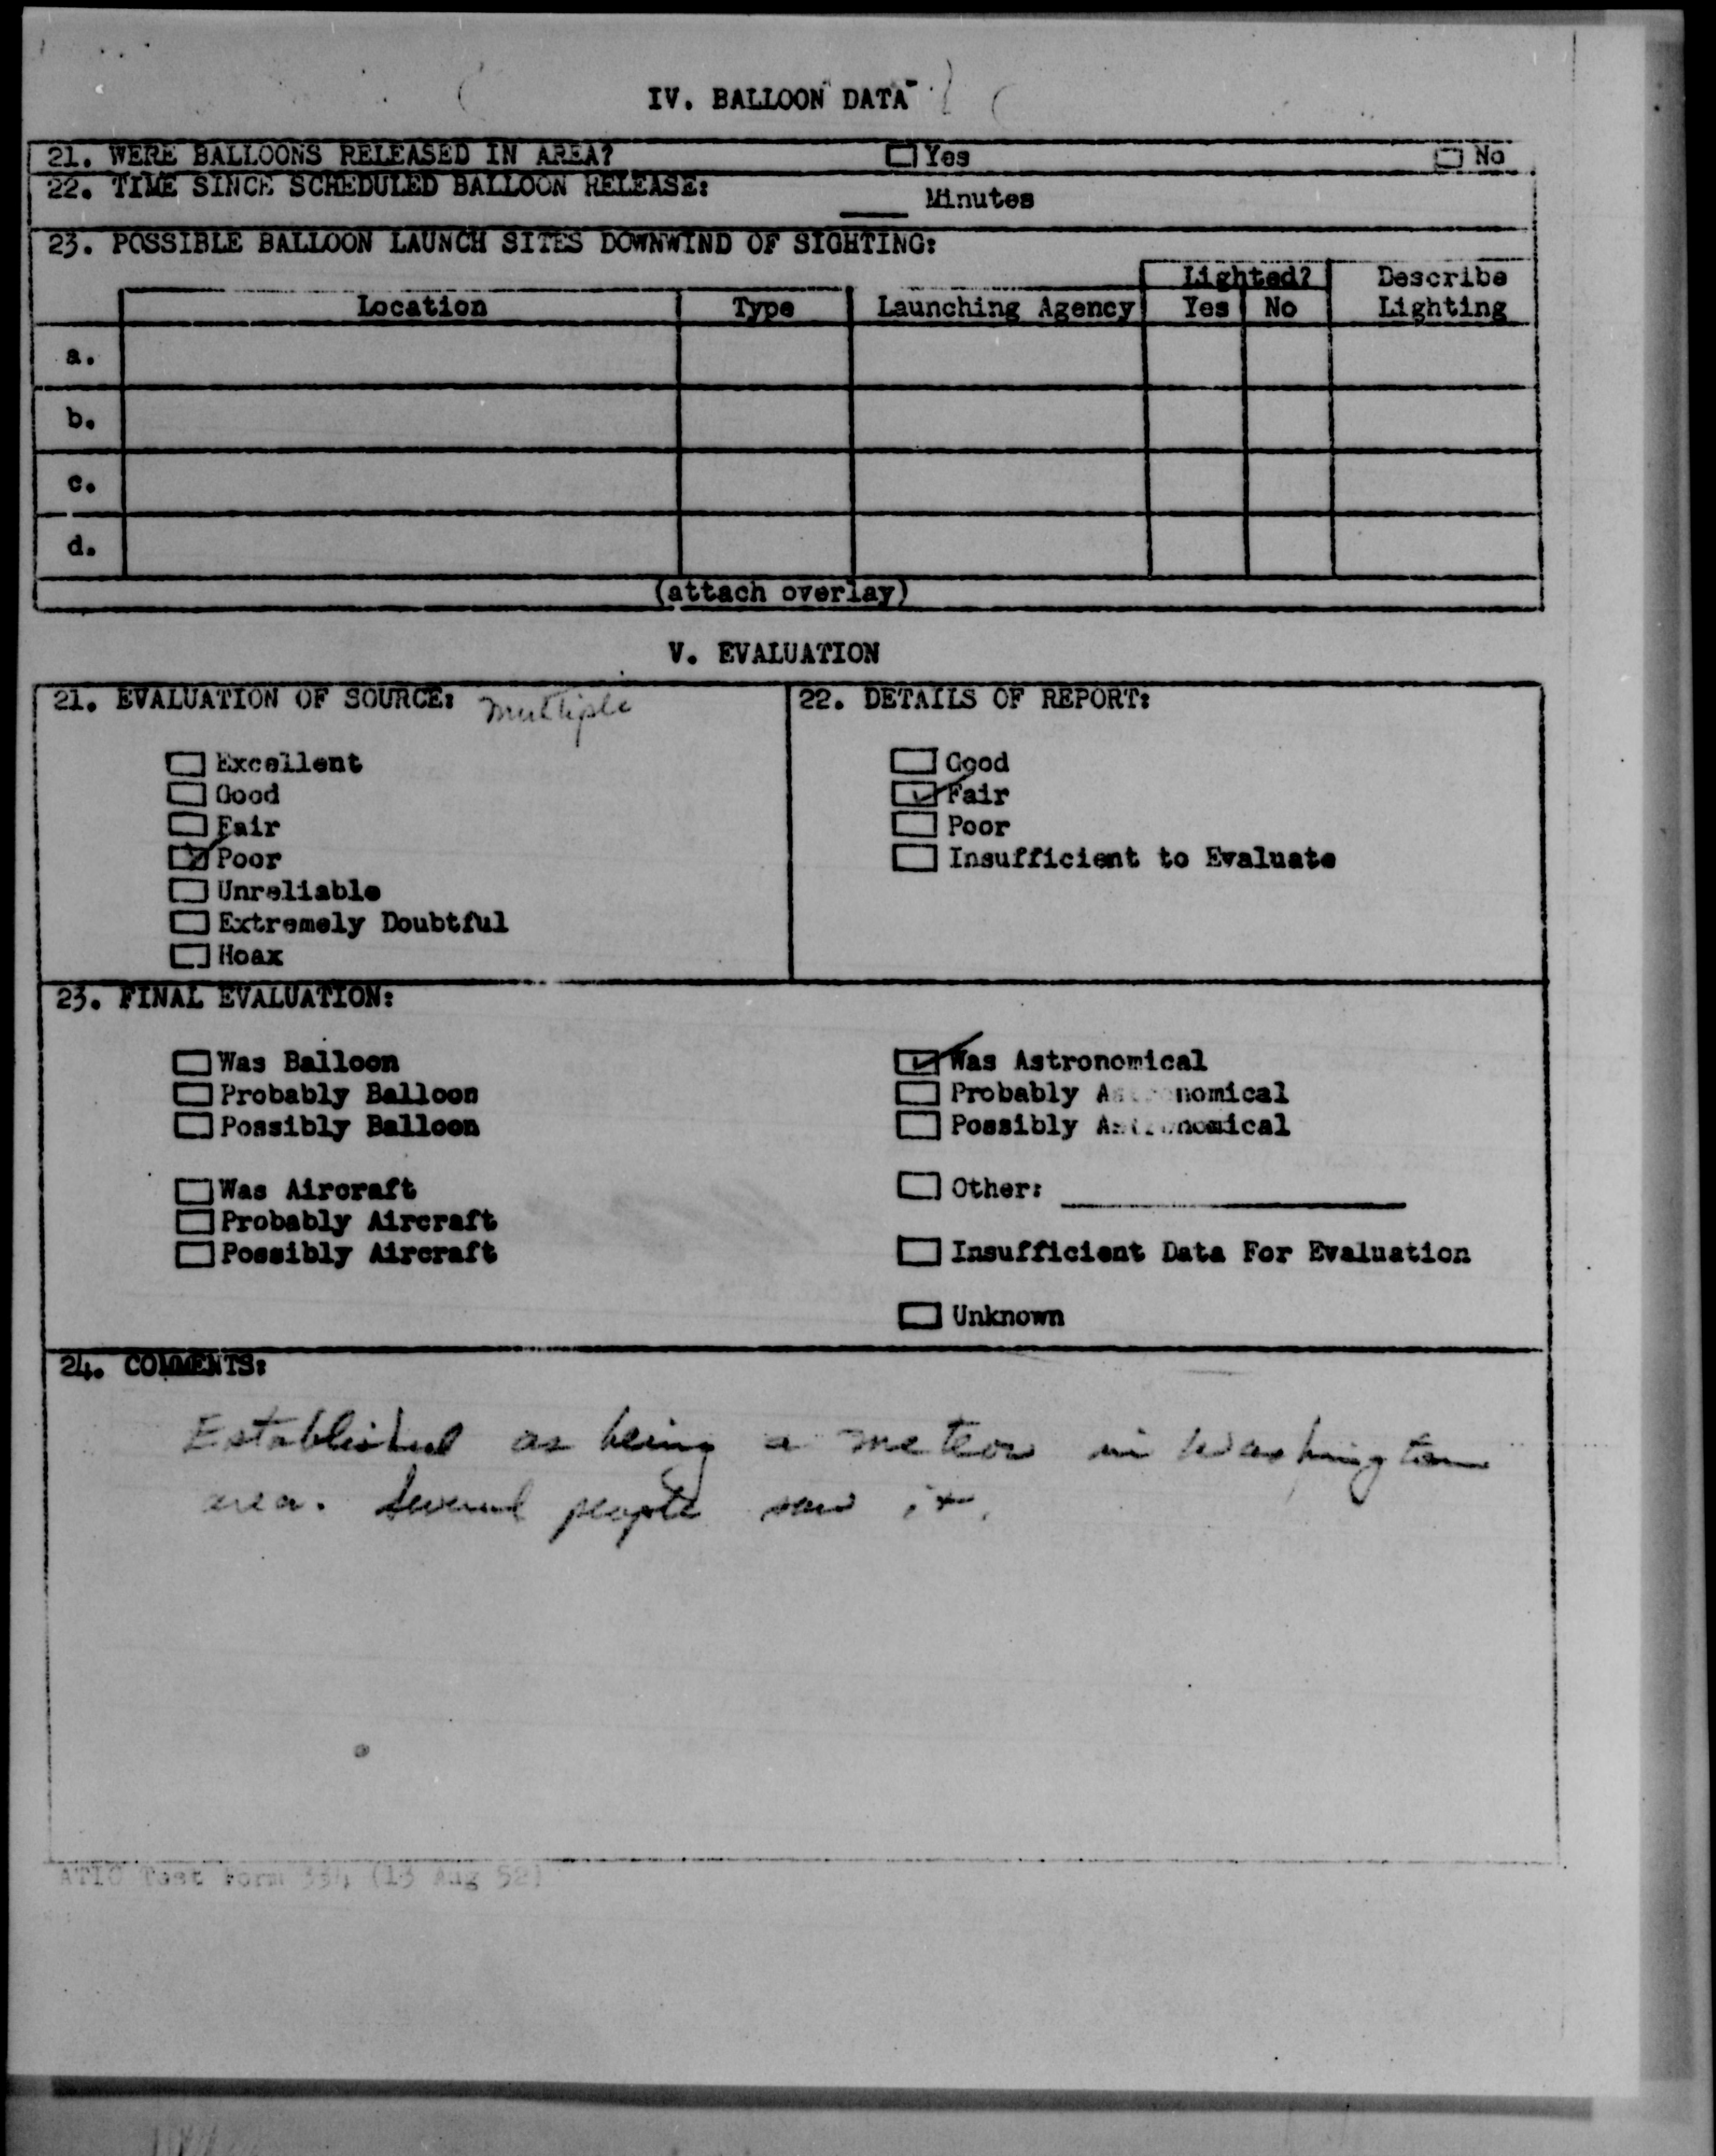 IV. BALLOON DATA
21. WERE BALLOONS RELEASED IN AREA? Yes No
22. TIME SINCE SCHEDULED BALLOON RELEASE: ____ Minutes
23. POSSIBLE BALLOON LAUNCH SITES DOWNWIND OF SIGHTING:
Lighted? Describe
Location Type Launching Agency Yes No Lighting
a.
b.
c.
d.
(attach overlay)
V. EVALUATION
21. EVALUATION OF SOURCE: Multiple
Excellent
Good
Fair
Poor
Unreliable
Extremely Doubtful
Hoax
22. DETAILS OF REPORT:
Good
Fair
Poor
Insufficient to Evaluate
23. FINAL EVALUATION:
Was Balloon
Probably Balloon
Possibly Balloon
Was Aircraft
Probably Aircraft
Possibly Aircraft
Was Astronomical
Probably Astronomical
Possibly Astronomical
Other:
Insufficient Data For Evaluation
Unknown
24. COMMENTS:
Established as being a meteor in Washington
area. Several people saw it.
ATIC Test Form 334 (13 Aug 52)